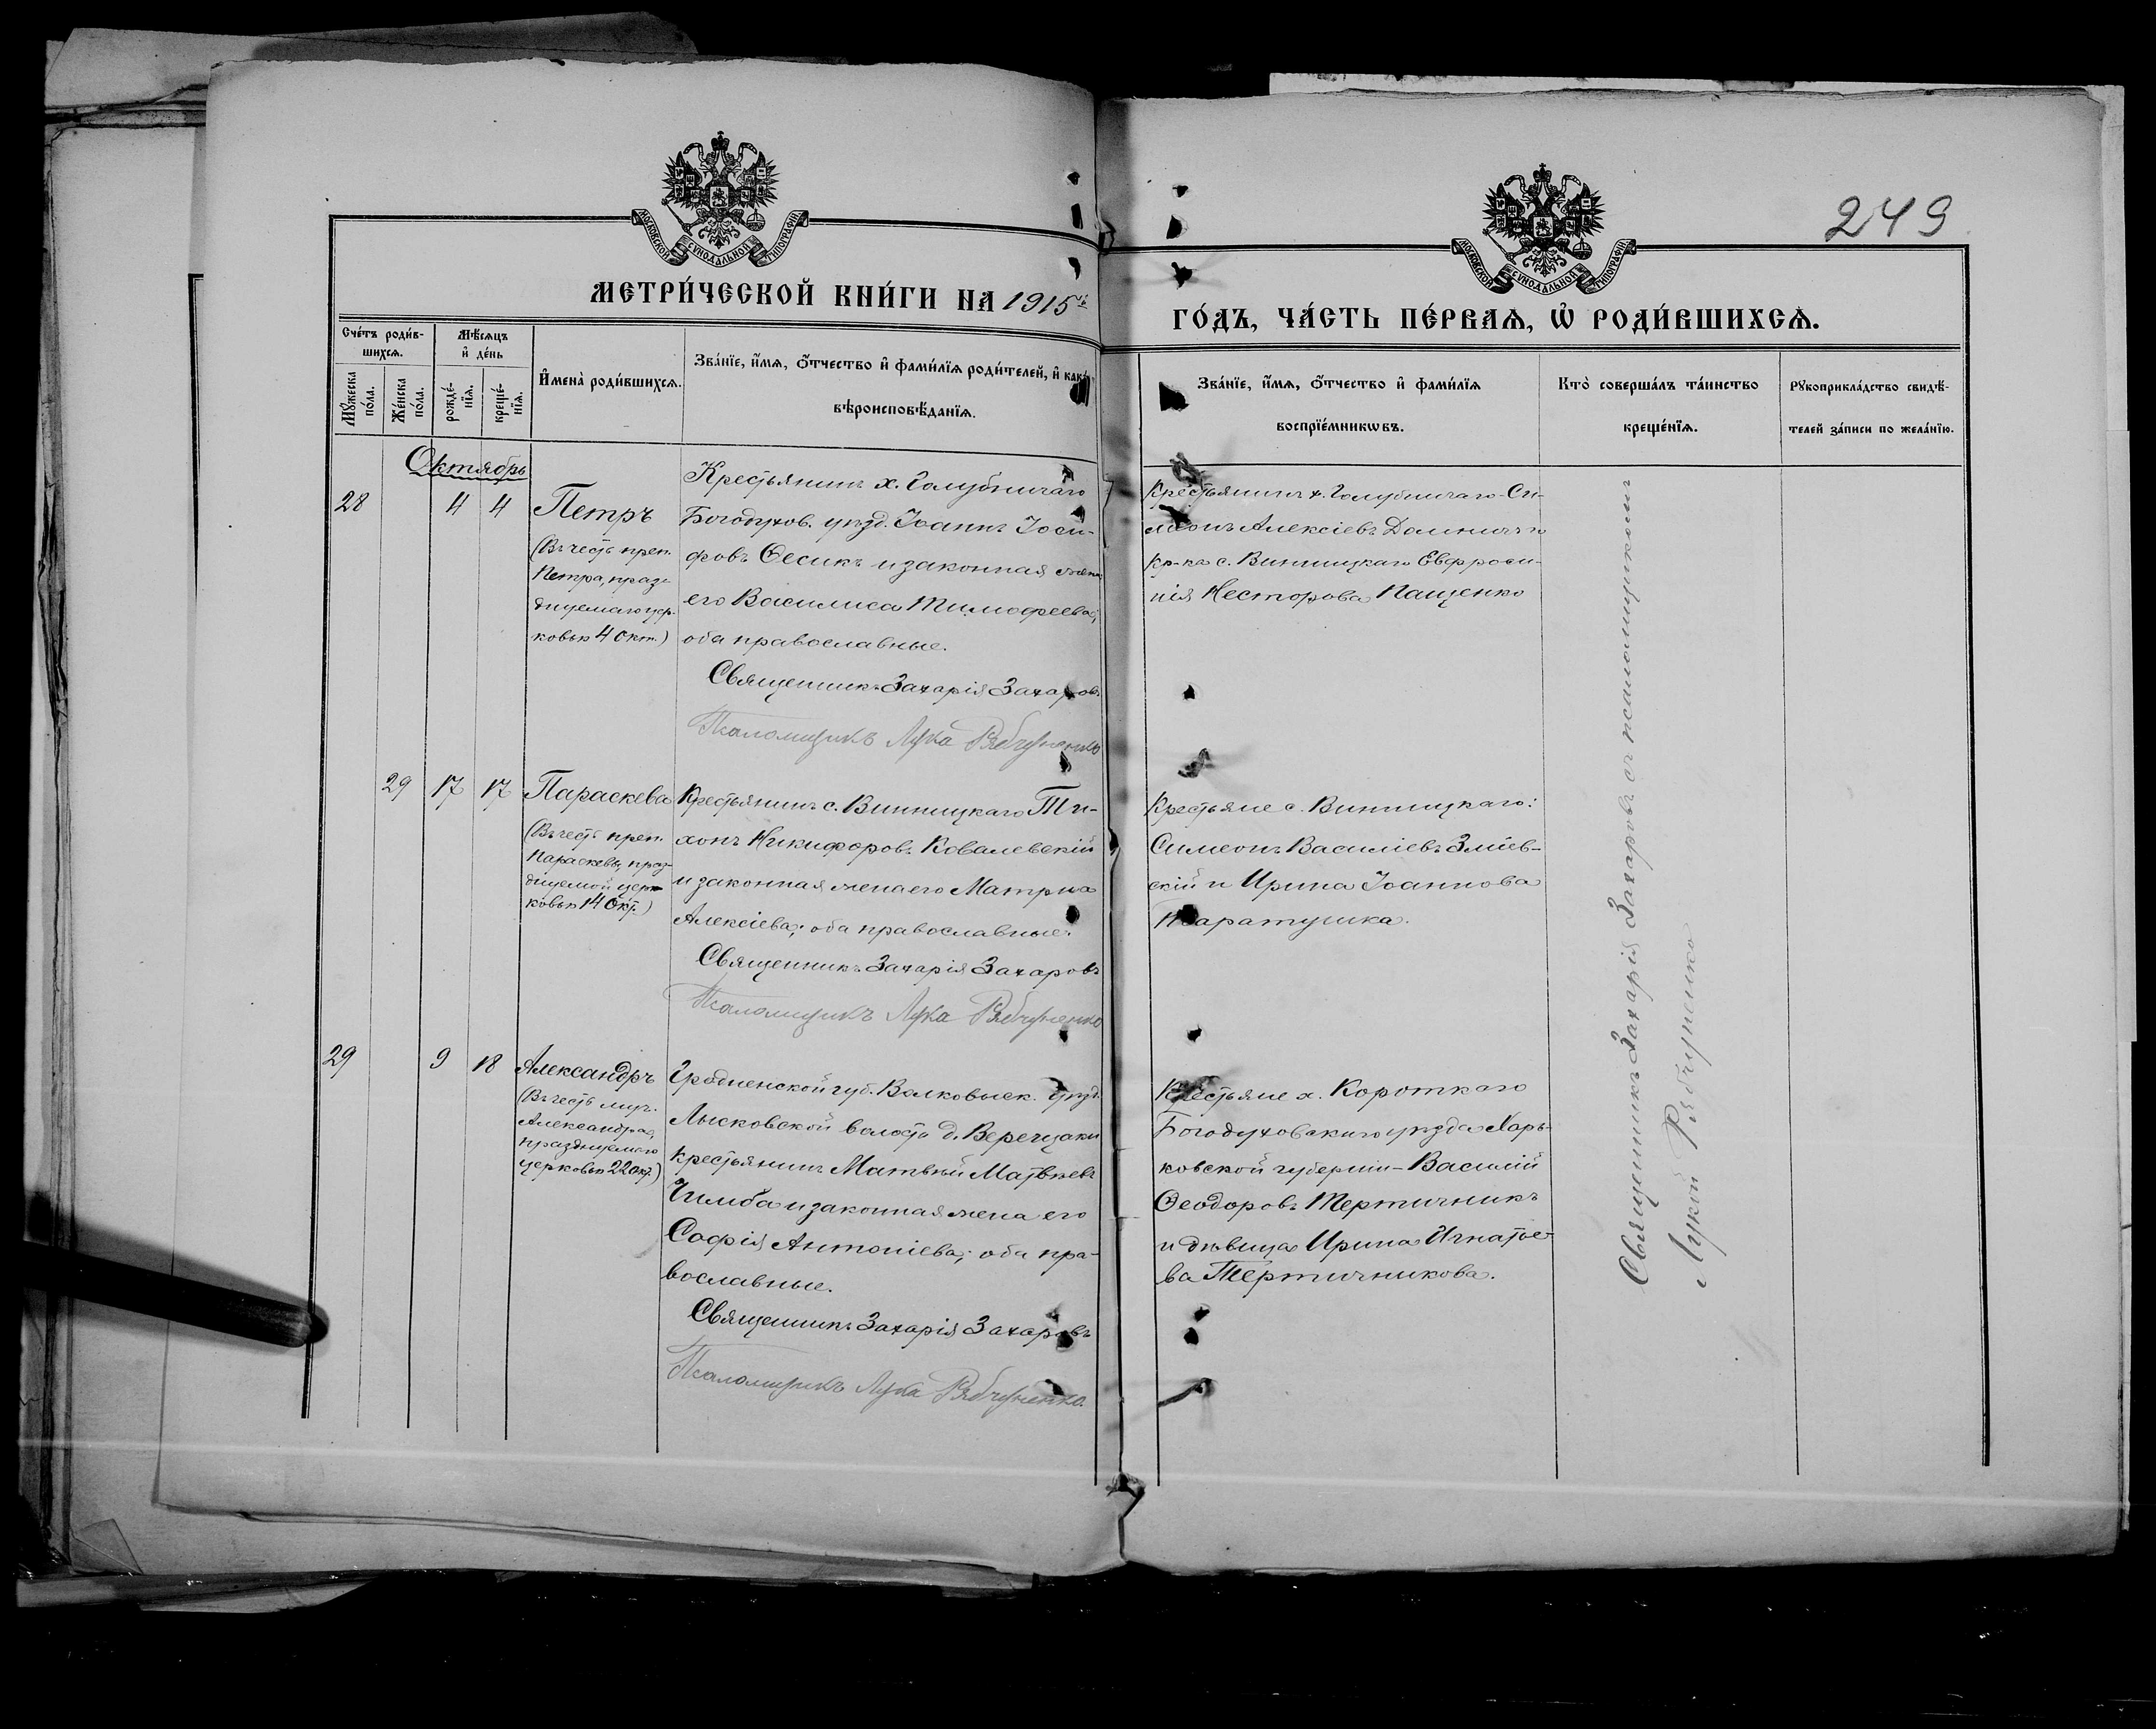 249
МОСКОВСКОЙ СѴНОДАЛЬНОЙ ТИПОГРАФІИ
МОСКОВСКОЙ СѴНОДАЛЬНОЙ ТИПОГРАФІИ
МЕТРИ́ЧЕСКОЙ КНИ́ГИ НА 1915й
ГО́ДЪ, ЧА́СТЬ ПЕ́РВАѦ, Ѡ РОДИ́ВШИХСѦ.
Сче́тъ роди́в-
шихсѧ.
Мѣ́сѧцъ
и҆ де́нь
Мꙋ́жеска
по́ла.
Же́нска
по́ла.
рожде́-
нїѧ.
креще́-
нїѧ.
И҆мена̀ роди́вшихсѧ.
Зва́нїе, и҆́мѧ, ѻ҆́тчество и҆ фами́лїѧ роди́телей, и҆ како́гѡ
вѣроисповѣ́данїѧ.
Зва́нїе, и҆́мѧ, ѻ҆́тчество и҆ фами́лїѧ
воспрїе́мникѡвъ.
Кто̀ соверша́лъ та́инство
креще́нїѧ.
Рꙋкоприкла́дство свидѣ́-
телей за́писи по жела́нїю.
Октябрь
28 4 4
Петръ
(Въ честь преп.
Петра, празд-
днуемаго цер-
ковью 4 Окт.)
Крестьянинъ х. Голубничаго
Богодухов. уѣзд. Іоаннъ Іоси-
фовъ Ѳесикъ и законная жена
его Василиса Тимофеева;
оба православные.
Священникъ Захарія Захаровъ
Псаломщикъ Лука Рябчуненко
Крестьянинъ х. Голубничаго Си-
меонъ Алексіевъ
кр-ка с. Винницкаго Евфроси-
нія Несторова Пащенко
29 17 17
Параскева
(Въ честь преп.
Параскевы, праз-
днуемой цер-
ковью 14 Окт.)
Крестьянинъ с. Винницкаго Ти-
хонъ Никифоровъ Ковалевскій
и законная жена его Матрона
Алексіева; оба православные.
Священникъ Захарія Захаровъ
Псаломщикъ Лука Рябчуненко
Крестьяне с. Винницкаго:
Симеонъ Василіевъ Зміев-
скій и Ирина Іоаннова
Таратушка.
29 9 18
Александръ
(Въ честь муч.
Александра,
празднуемаго
церковью 22 окт.)
Гродненской губ. Волковыск. уѣзд.
Лысковской волости д. Верещаки
крестьянинъ Матвѣй Матвѣевъ
Чимба и законная жена его
Софія Антоніева; оба пра-
вославные.
Священникъ Захарія Захаровъ
Псаломщикъ Лука Рябчуненко.
Крестьяне х. Короткаго
Богодуховскаго уѣзда Харь-
ковской губерніи - Василій
Ѳеодоровъ Тертичникъ
и дѣвица Ирина Игнатіе-
ва Тертичникова.
Священникъ Захарія Захаровъ съ псаломщикомъ
Лукой Рябчуненко